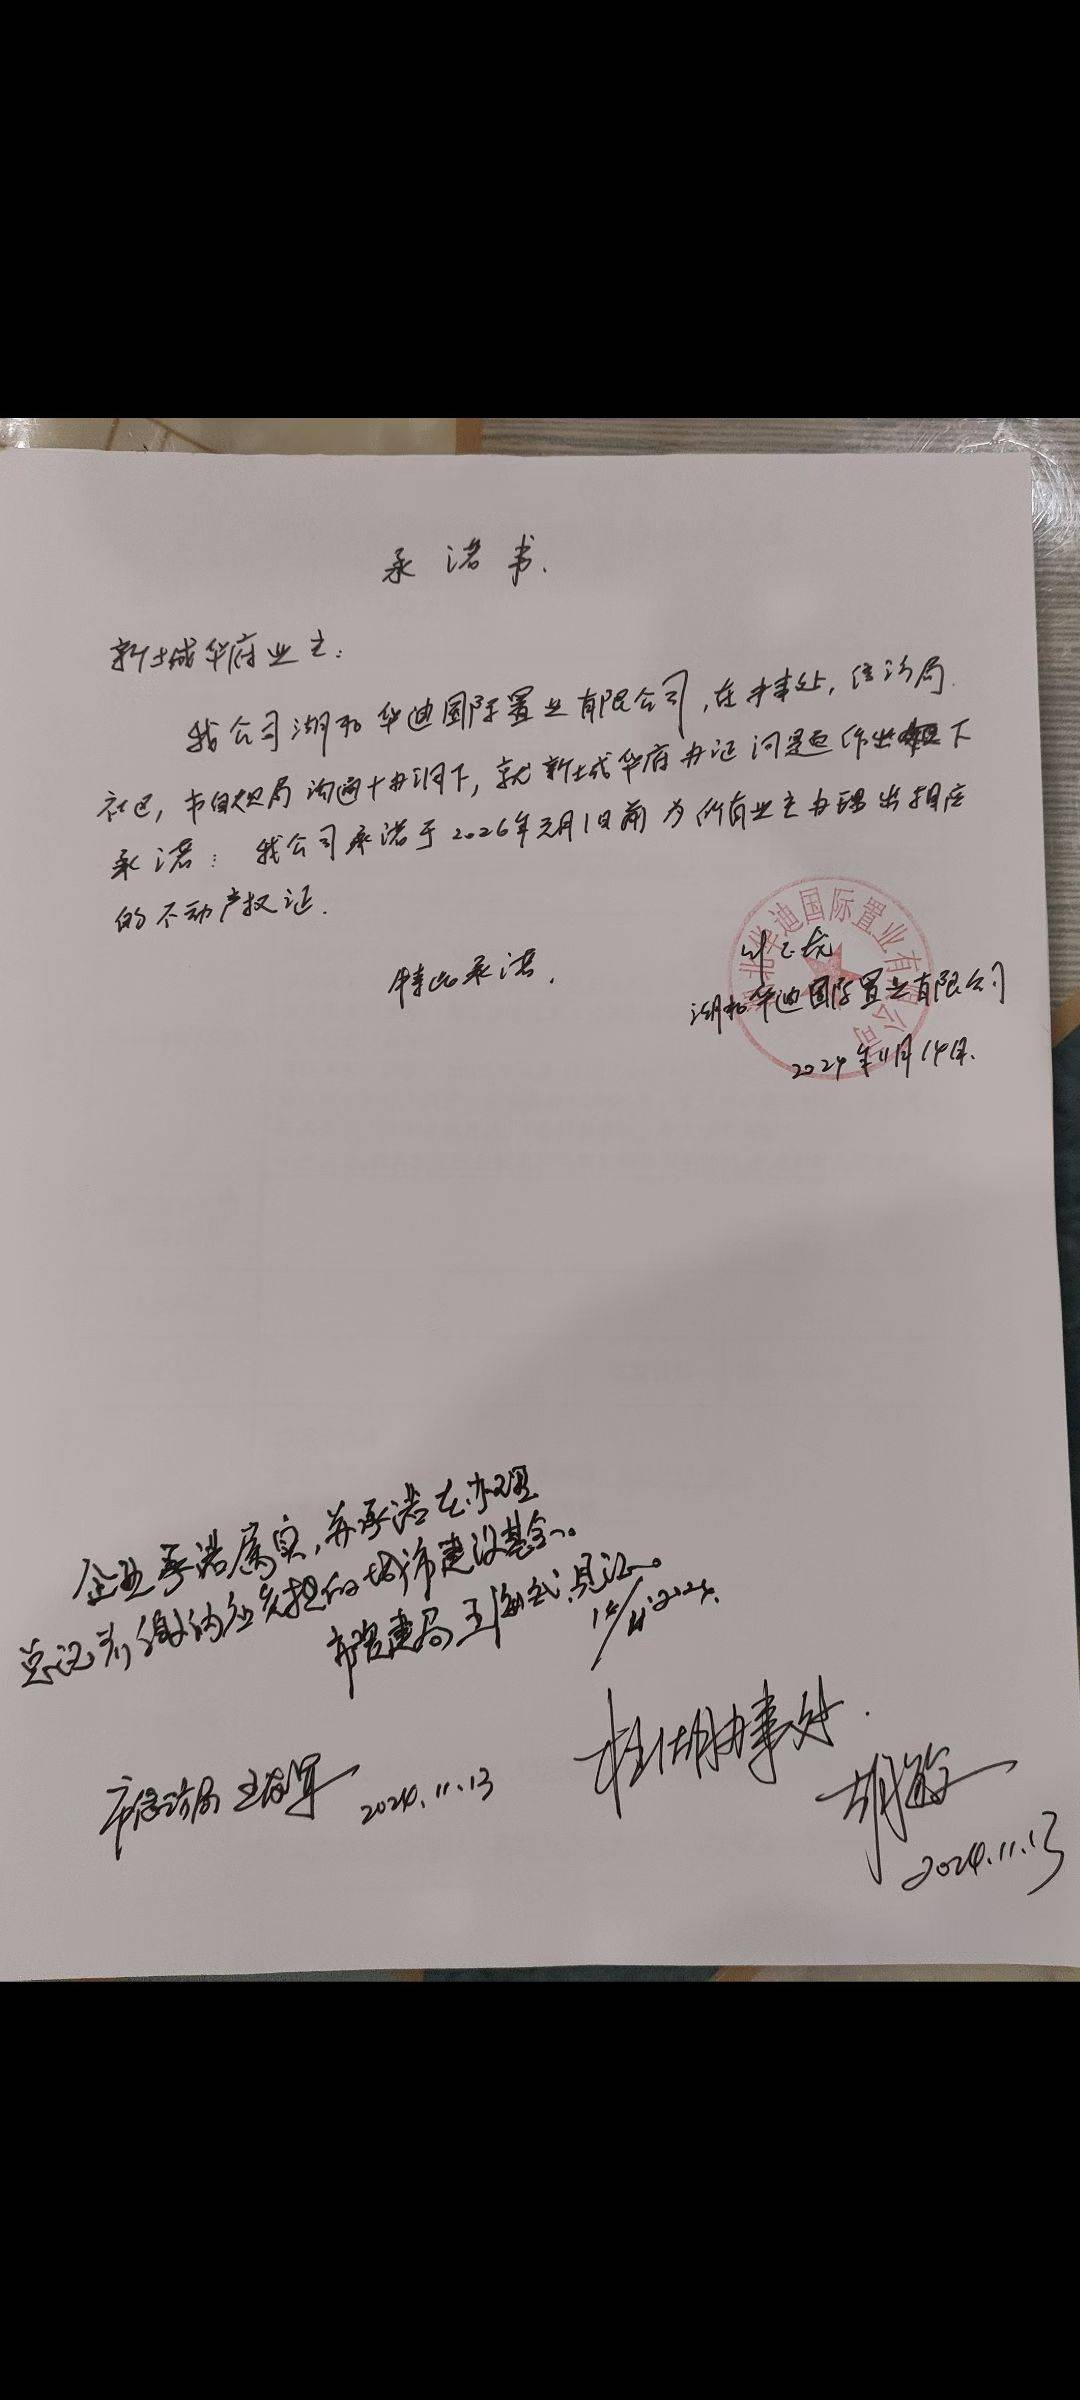 承诺书.
新城华府业主:
我公司湖北华迪国际置业有限公司,在办事处,信访局
社区,市自规局沟通协调下,就新城华府办证问题作出如下
承诺: 我公司承诺于2026年元月1日前为所有业主办理出相应
的不动产权证.
特此承诺.
湖北华迪国际置业有限公司
湖北华迪国际置业有限公司
2024年11月14日.
企业承诺属实,并承诺在办理
总证前缴纳应负担的城市建设基金。
市住建局王海 见证。
14/11.2024.
市信访局 王 军 2024.11.13
桂湖办事处.
胡
2024.11.13